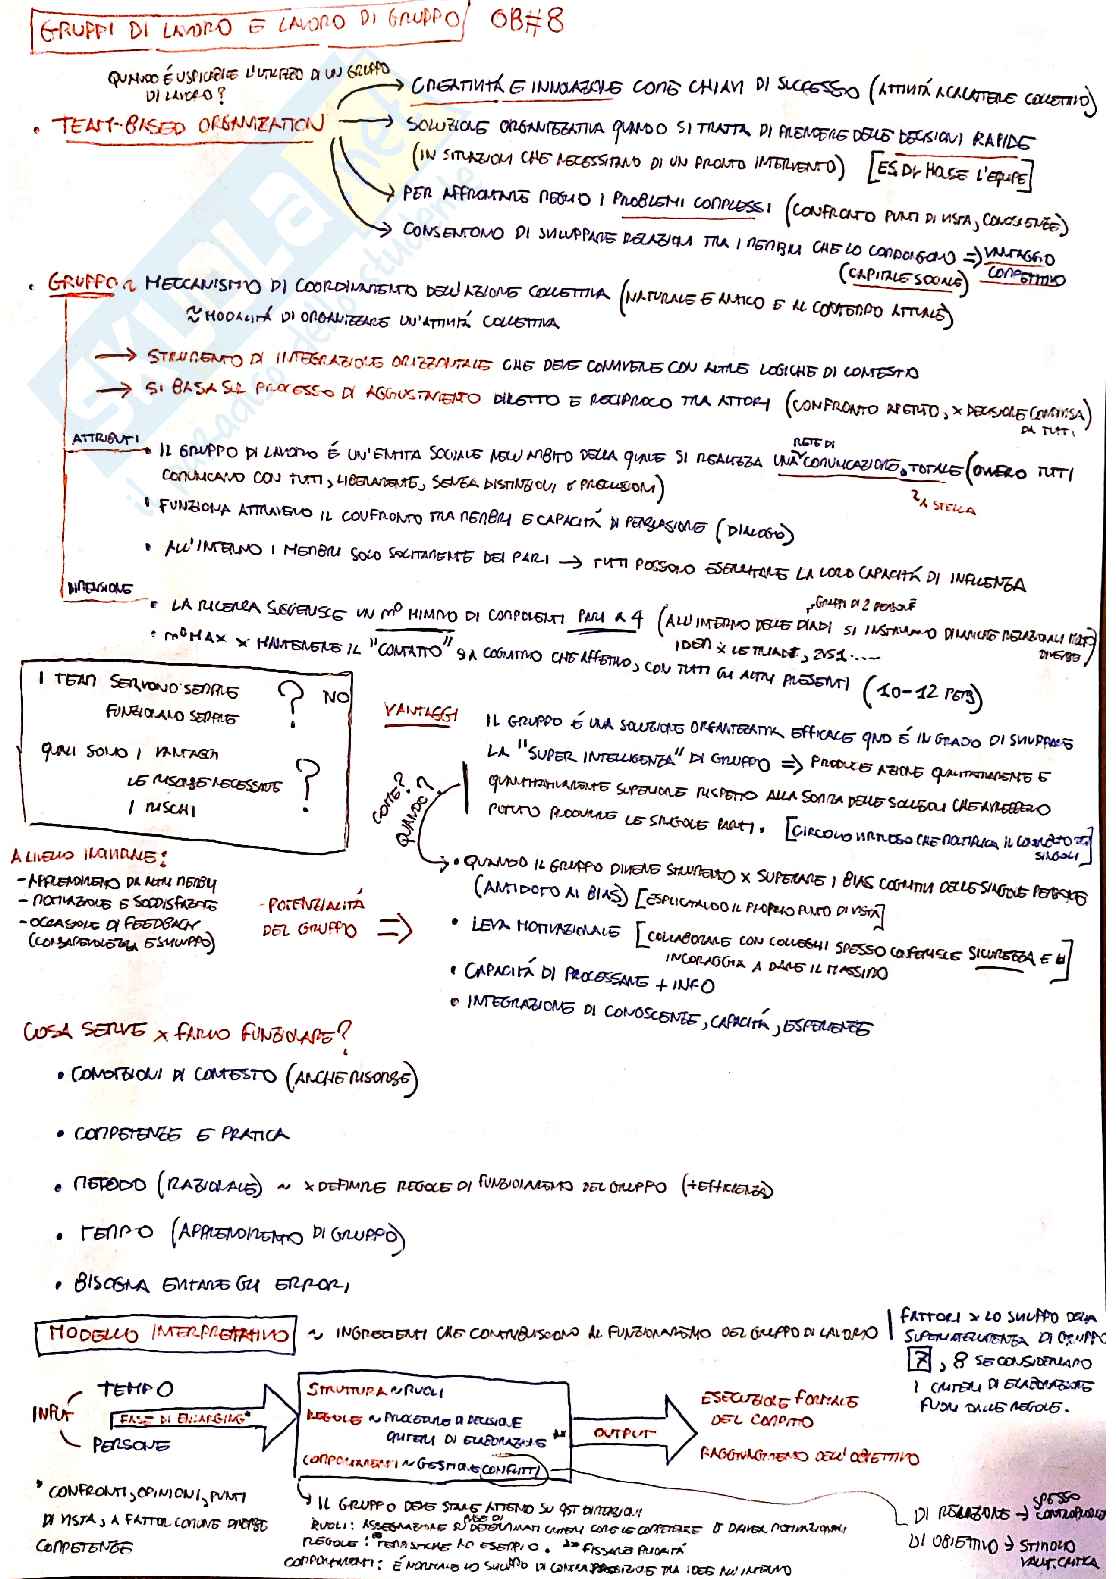 GRUPPI DI LAVORO E LAVORO DI GRUPPO OB#8
QUANDO É USPICABILE L'UTILIZZO DI UN GRUPPO
DI LAVORO?
CREATIVITÁ E INNOVAZIONE COME CHIAVI DI SUCCESSO (ATTIVITÁ A CARATTERE COLLETTIVO)
• TEAM-BASED ORGANIZATION
SOLUZIONE ORGANIZZATIVA QUANDO SI TRATTA DI PRENDERE DELLE DECISIONI RAPIDE
(IN SITUAZIONI CHE NECESSITANO DI UN PRONTO INTERVENTO) [ES. DR HOUSE L'EQUIPE]
PER AFFRONTARE MEGLIO I PROBLEMI COMPLESSI (CONFRONTO PUNTI DI VISTA, CONOSCENZE)
CONSENTONO DI SVILUPPARE RELAZIONI TRA I MEMBRI CHE LO COMPONGONO => VANTAGGIO
(CAPITALE SOCIALE) COMPETITIVO
• GRUPPO ~ MECCANISMO DI COORDINAMENTO DELL'AZIONE COLLETTIVA (NATURALE E ANTICO E AL CONTEMPO ATTUALE)
≈ MODALITÁ DI ORGANIZZARE UN'ATTIVITÁ COLLETTIVA
→ STRUMENTO DI INTEGRAZIONE ORIZZONTALE CHE DEVE CONVIVERE CON ALTRE LOGICHE DI CONTESTO
→ SI BASA SUL PROCESSO DI AGGIUSTAMENTO DIRETTO E RECIPROCO TRA ATTORI (CONFRONTO APERTO, x DECISIONE CONDIVISA)
DA TUTTI
ATTRIBUTI
• IL GRUPPO DI LAVORO É UN'ENTITÁ SOCIALE NELL'AMBITO DELLA QUALE SI REALIZZA UNA RETE DI COMUNICAZIONE TOTALE (OVVERO TUTTI
COMUNICANO CON TUTTI, LIBERAMENTE, SENZA DISTINZIONI O PRECLUSIONI)
A STELLA
• FUNZIONA ATTRAVERSO IL CONFRONTO TRA MEMBRI E CAPACITÁ DI PERSUASIONE (DIALOGO)
• ALL'INTERNO I MEMBRI SONO SOLITAMENTE DEI PARI → TUTTI POSSONO ESERCITARE LA LORO CAPACITÁ DI INFLUENZA
DIMENSIONE
• LA RICERCA SUGGERISCE UN N° MINIMO DI COMPONENTI PARI A 4 (ALL'INTERNO DELLE DIADI SI INSTAURANO DINAMICHE RELAZIONALI DIVERSE)
GRUPPI DI 2 PERSONE
IDEM x LE TRIADI, 2VS1.....
• N° MAX x MANTENERE IL "CONTATTO" SIA COGNITIVO CHE AFFETTIVO, CON TUTTI GLI ALTRI PRESENTI (10-12 PERS)
I TEAM SERVONO SEMPRE
FUNZIONANO SEMPRE
? NO
QUALI SONO I VANTAGGI
LE RISORSE NECESSARIE
I RISCHI
?
VANTAGGI
IL GRUPPO É UNA SOLUZIONE ORGANIZZATIVA EFFICACE QND É IN GRADO DI SVILUPPARE
LA "SUPER INTELLIGENZA" DI GRUPPO => PRODURRE AZIONE QUALITATIVAMENTE E
QUANTITATIVAMENTE SUPERIORE RISPETTO ALLA SOMMA DELLE SOLUZIONI CHE AVREBBERO
POTUTO PRODURRE LE SINGOLE PARTI. [CIRCOLO VIRTUOSO CHE MOLTIPLICA IL
SINGOLI]
COME?
QUANDO?
A LIVELLO INDIVIDUALE:
- APPRENDIMENTO DA ALTRI MEMBRI
- MOTIVAZIONE E SODDISFAZIONE
- OCCASIONE DI FEEDBACK
(CONSAPEVOLEZZA E SVILUPPO)
- POTENZIALITÁ
DEL GRUPPO =>
• QUANDO IL GRUPPO DIVIENE STRUMENTO x SUPERARE I BIAS COGNITIVI DELLE SINGOLE PERSONE
(ANTIDOTO AI BIAS) [ESPLICITANDO IL PROPRIO PUNTO DI VISTA]
• LEVA MOTIVAZIONALE [COLLABORARE CON COLLEGHI SPESSO CONFERISCE SICUREZZA E
INCORAGGIA A DARE IL MASSIMO]
• CAPACITÁ DI PROCESSARE + INFO
• INTEGRAZIONE DI CONOSCENZE, CAPACITÁ, ESPERIENZE
COSA SERVE x FARLO FUNZIONARE?
• CONDIZIONI DI CONTESTO (ANCHE RISORSE)
• COMPETENZE E PRATICA
• METODO (RAZIONALE) ~ x DEFINIRE REGOLE DI FUNZIONAMENTO DEL GRUPPO (+EFFICIENZA)
• TEMPO (APPRENDIMENTO DI GRUPPO)
• BISOGNA EVITARE GLI ERRORI
MODELLO INTERPRETATIVO ~ INGREDIENTI CHE CONTRIBUISCONO AL FUNZIONAMENTO DEL GRUPPO DI LAVORO
FATTORI x LO SVILUPPO DELLA
SUPERINTELLIGENZA DI GRUPPO
7, 8 SE CONSIDERIAMO
I CRITERI DI ELABORAZIONE
FUORI DALLE REGOLE.
INPUT
TEMPO
FASE DI *
PERSONE
STRUTTURA ~ RUOLI
REGOLE ~ PROCEDURE DI DECISIONE
CRITERI DI ELABORAZIONE **
COMPORTAMENTI ~ GESTIONE CONFLITTI
OUTPUT
ESECUZIONE FORMALE
DEL COMPITO
RAGGIUNGIMENTO DELL'OBIETTIVO
* CONFRONTI, OPINIONI, PUNTI
DI VISTA, A FATTOR COMUNE DIVERSE
COMPETENZE
IL GRUPPO DEVE STARE ATTENTO SU QST DIREZIONI
RUOLI: ASSEGNAZIONE SU BASE DI DETERMINATI CRITERI COME LE COMPETENZE O DRIVER MOTIVAZIONALI
REGOLE: AD ESEMPIO. ** FISSARE PRIORITÁ
COMPORTAMENTI: É NORMALE LO SVILUPPO DI CONTRAPPOSIZIONE TRA IDEE ALL'INTERNO
DI RELAZIONE → SPESSO
CONTROPRODUCENTE
DI OBIETTIVO → STIMOLO
VALUT. CRITICA
SKUOLA.net
il paradiso dello studente